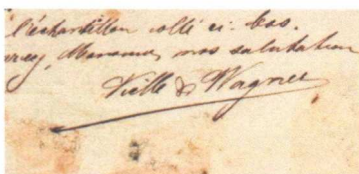 l'échantillon collé ci-bas.
Madame, nos salutation
Vielle & Wagner